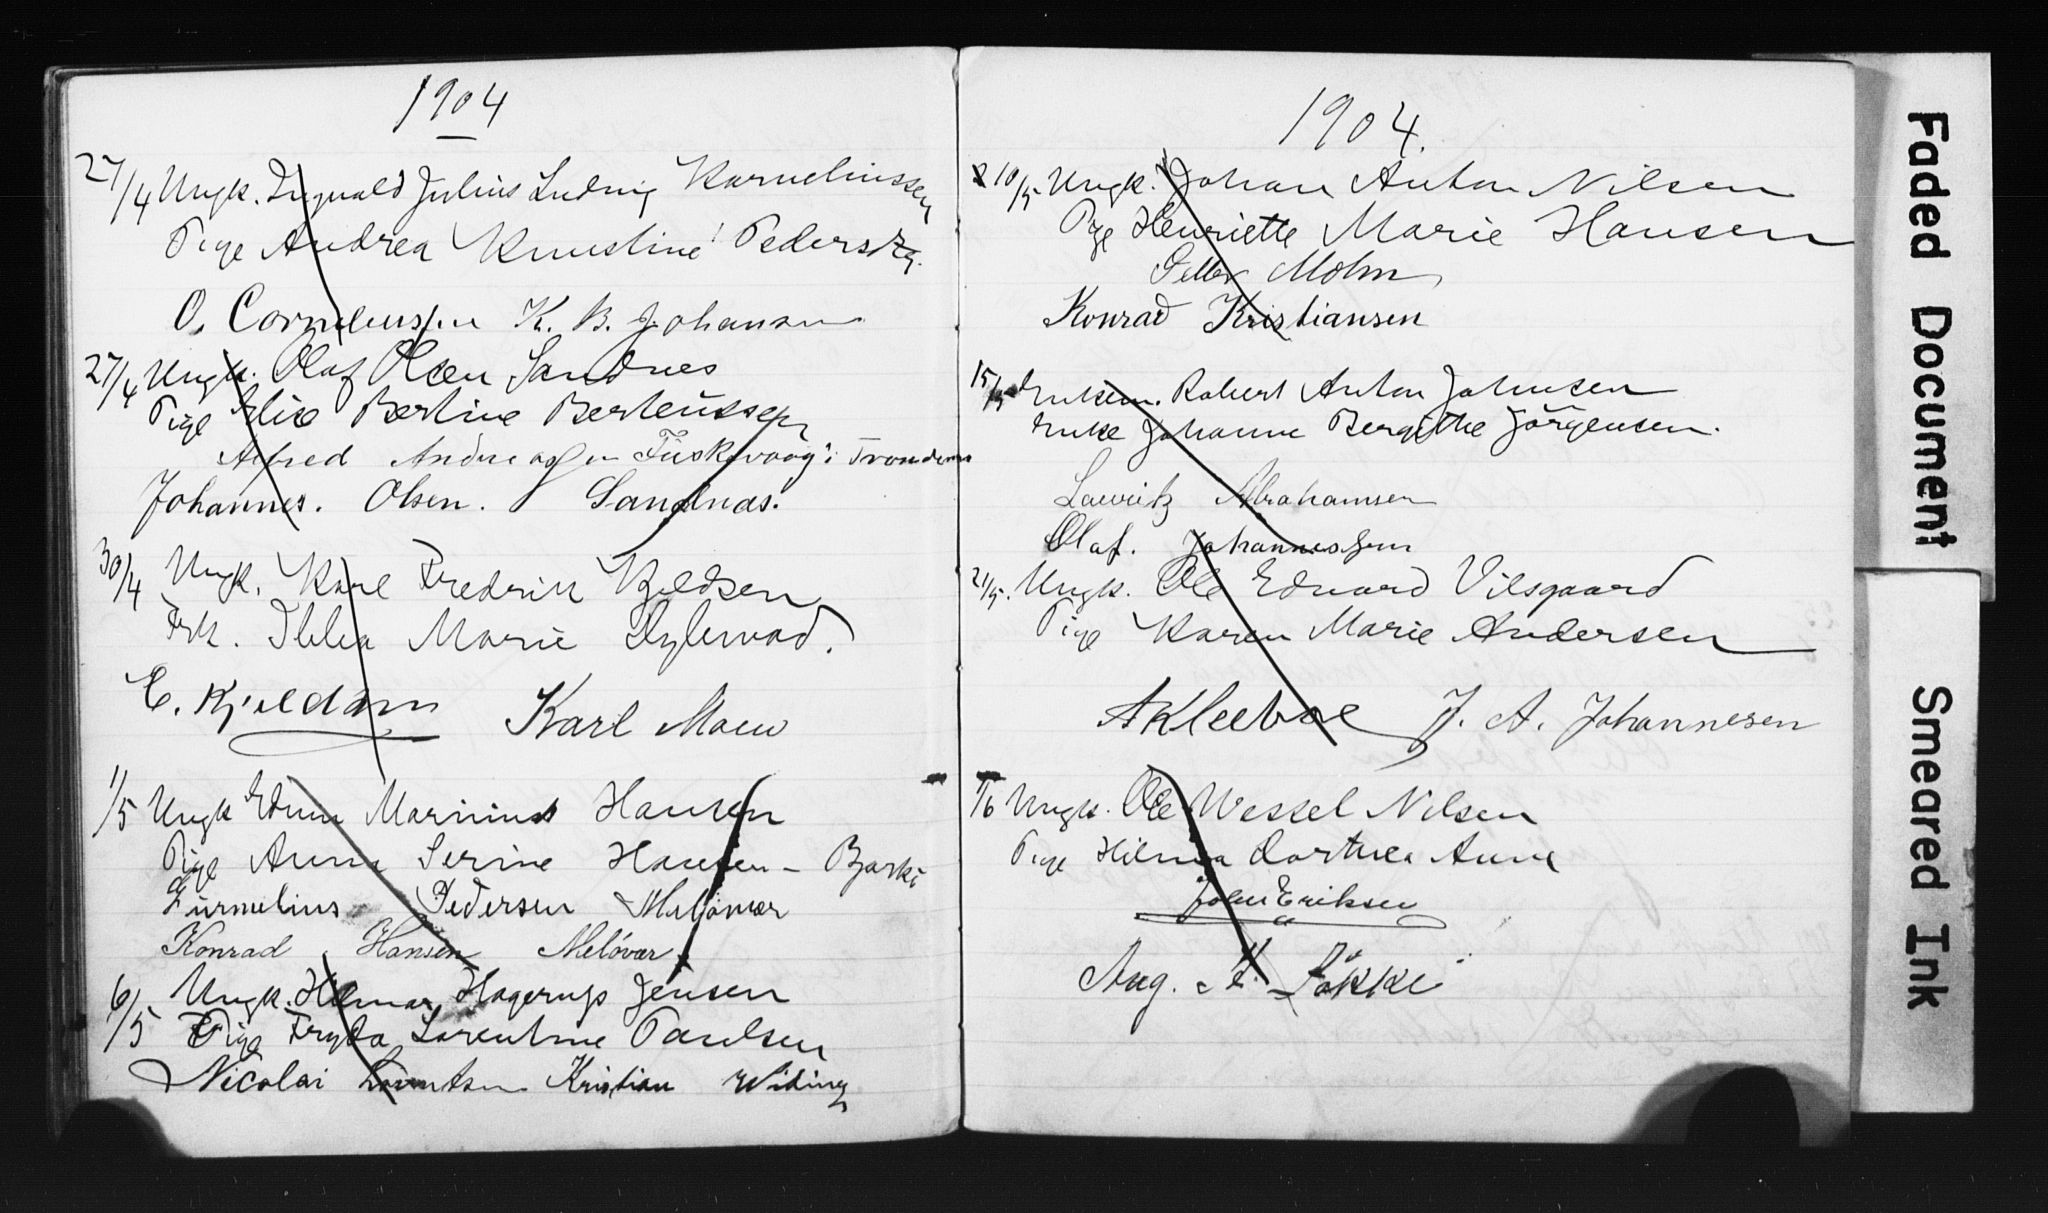 1904
27/4 Ungk. Ingvald Julius Ludvig Kornelinssen
Pige Andrea Kristine Pedersen.
O. Corneliussen K. B. Johansen
27/4 Ungk. Olaf Olsen Sandnes
Pige Elise Bertine Berteussen
Alfred Andreassen Fuskevaag i Trondenes
Johannes. Olsen. Sandnas.
30/4 Ungk. Karl Fredrik Kjeldsen
Frk. Marie
E. Kjeldsen Karl Moew
1/5 Ungk Marinius Hansen
Pige Anna Serine Hansen - Bjarkö
Pedersen Melövær
Konrad Hansen Melövær
6/5 Ungk. Hilmar Hagerup Jensen
Pige Fryda Lorentine Paulsen
Nicolai Lorentsen Kristian Widing
1904.
10/5 Ungk. Johan Anton Nilsen
Pige Henriette Marie Hansen
Petter Mohn
Konrad Kristiansen
15/5 Enkem. Robert Anton Johnsen
Enke Johanne Bergithe Jörgensen.
Lauritz Abrahamsen
Olaf. Johannessen
21/5. Ungk. Ole Edvard Vilsgaard
Pige Karen Marie Andersen
A Kleeboe J. A. Johannesen
1/6 Ungk. Ole Wessel Nilsen
Pige Hilma Dorthea Aune
Johan Eriksen
Aug. Løkke
Faded Document
Smeared Ink